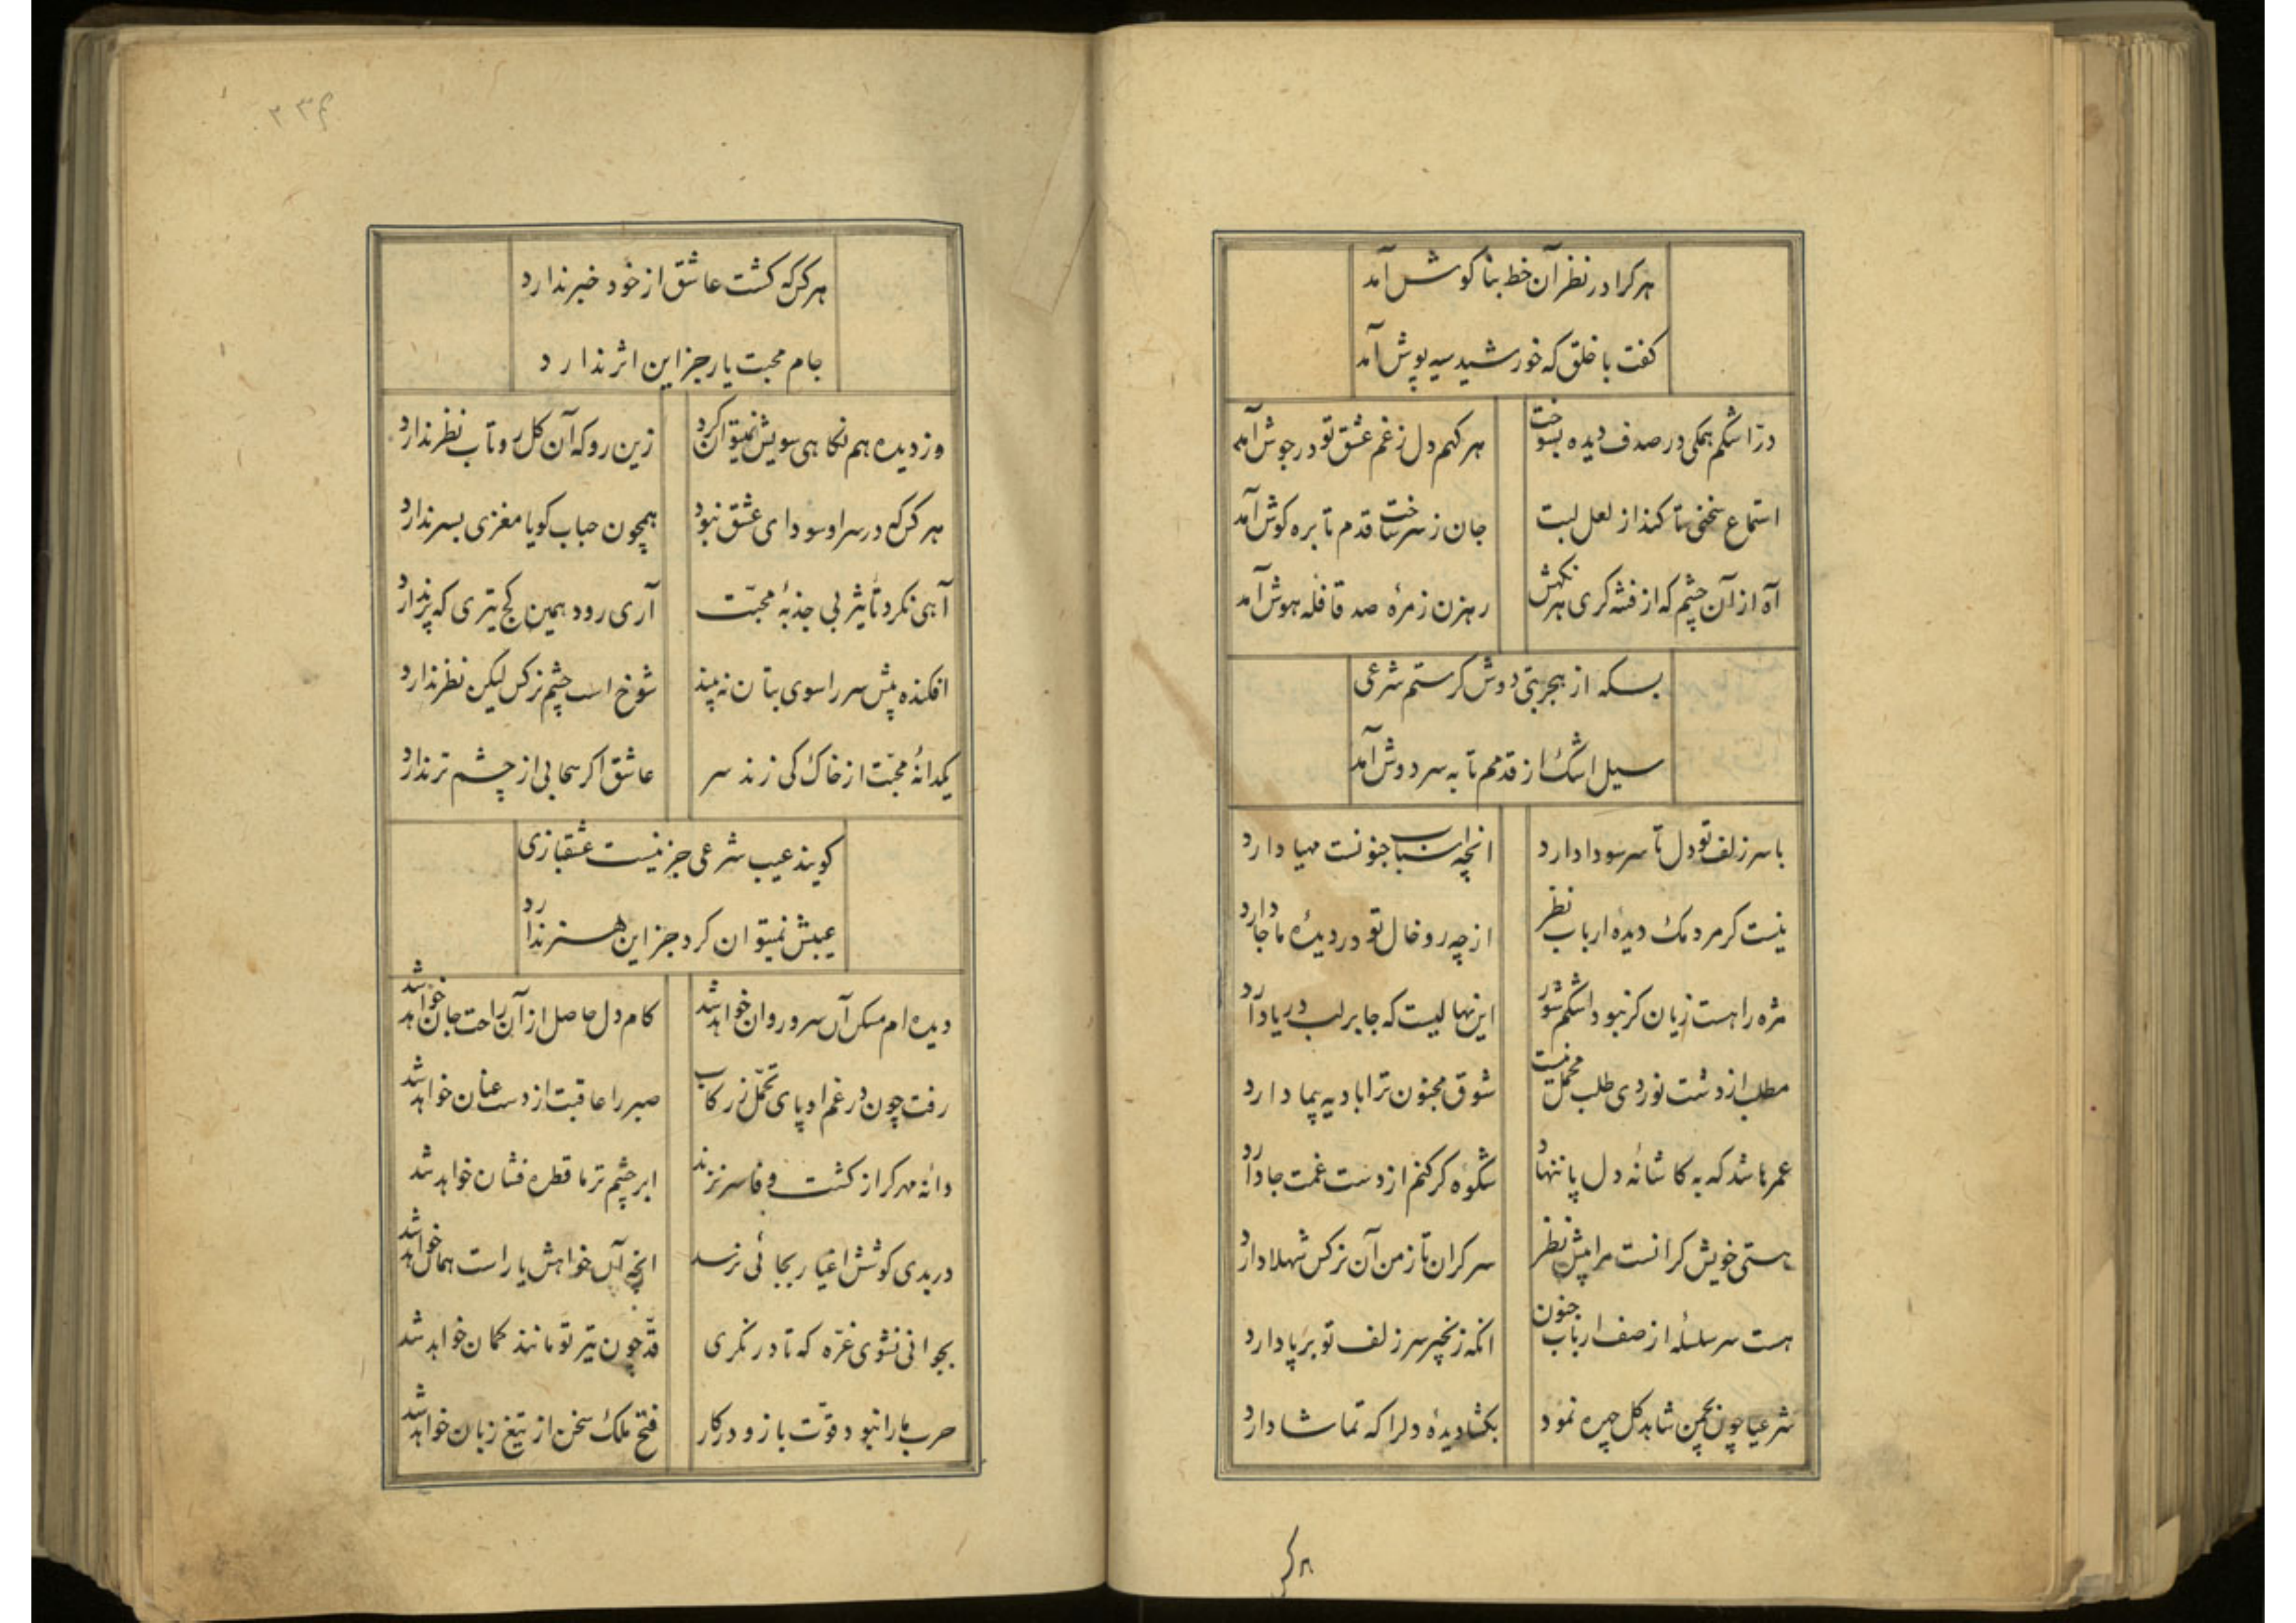 هرکرا در نظر آن خط بناکوش آمد
کفت با خلق که خورشید سیه پوش آمد
درّ اشکم همکی در صدف دیده بسوخت
هر کهم دل ز غم عشق تو در جوش آمد
استماع سخنی تا کند از لعل لبت
جان ز سر ساخت قدم تا بره کوش آمد
آه از آن چشم که از فتنه کری هر نکهش
رهزن زمرهٔ صد قافله هوش آمد
بسکه از هجر بتی دوش کرستم شرعی
سیل اشک از قدمم تا به سر دوش آمد
با سر زلف تو دل تا سر سودا دارد
انچه اسباب جنونست مهیا دارد
نیست کر مردمک دیده ارباب نظر
از چه رو خال تو در دیدهٔ ما جا دارد
مژه را هست زیان کر نبود اشکم شور
این نهالیست که جا بر لب دریا دارد
مطلب از دشت نوردی طلب محمل نیست
شوق مجنون ترا بادیه پیما دارد
عمرها شد که به کاشانهٔ دل پا ننهاد
شکوه کر کنم از دست غمت جا دارد
هستی خویش کرانست مرا پیش نظر
سر کران تا ز من آن نرکس شهلا دارد
هست سر سلسلهٔ از صف ارباب جنون
انکه زنجیر سر زلف تو بر پا دارد
شرعیا چون بچمن شاهد کل چهره نمود
بکشا دیدهٔ دلرا که تماشا دارد
هرکس
۲۳۴
هرکس که کشت عاشق از خود خبر ندارد
جام محبت یار جز این اثر ندارد
دزدیده هم نکاهی سویش نمیتوان کرد
زین رو که آن کل رو تاب نظر ندارد
هر کس که در سر او سودای عشق نبود
همچون حباب کویا مغزی بسر ندارد
آهی نکرد تاثیر بی جذبهٔ محبّت
آری رود همین کج تیری که پر ندارد
افکنده پیش سر را سوی بتان نه بیند
شوخ است چشم نرکس لیکن نظر ندارد
یکدانهٔ محبّت از خاک کی زند سر
عاشق اکر سحابی از چشم تر ندارد
کویند عیب شرعی جز نیست عشقبازی
عیبش نمیتوان کرد جز این هنر ندارد
دیده ام مسکن آن سرو روان خواهد شد
کام دل حاصل از آن راحت جان خواهد شد
رفت چون در غم او پای تحمّل ز رکاب
صبر را عاقبت از دست عنان خواهد شد
دانه مهر کر از کشت وفا سر نزند
ابر چشم تر ما قطره فشان خواهد شد
در بدی کوشش اغیار بجائی نرسد
انچه آن خواهش یار است همان خواهد شد
بجوانی نشوی غرّه که تا در نکری
قدّ چون تیر تو مانند کمان خواهد شد
حرب ما را نبود قوّت بازو در کار
فتح ملک سخن از تیغ زبان خواهد شد